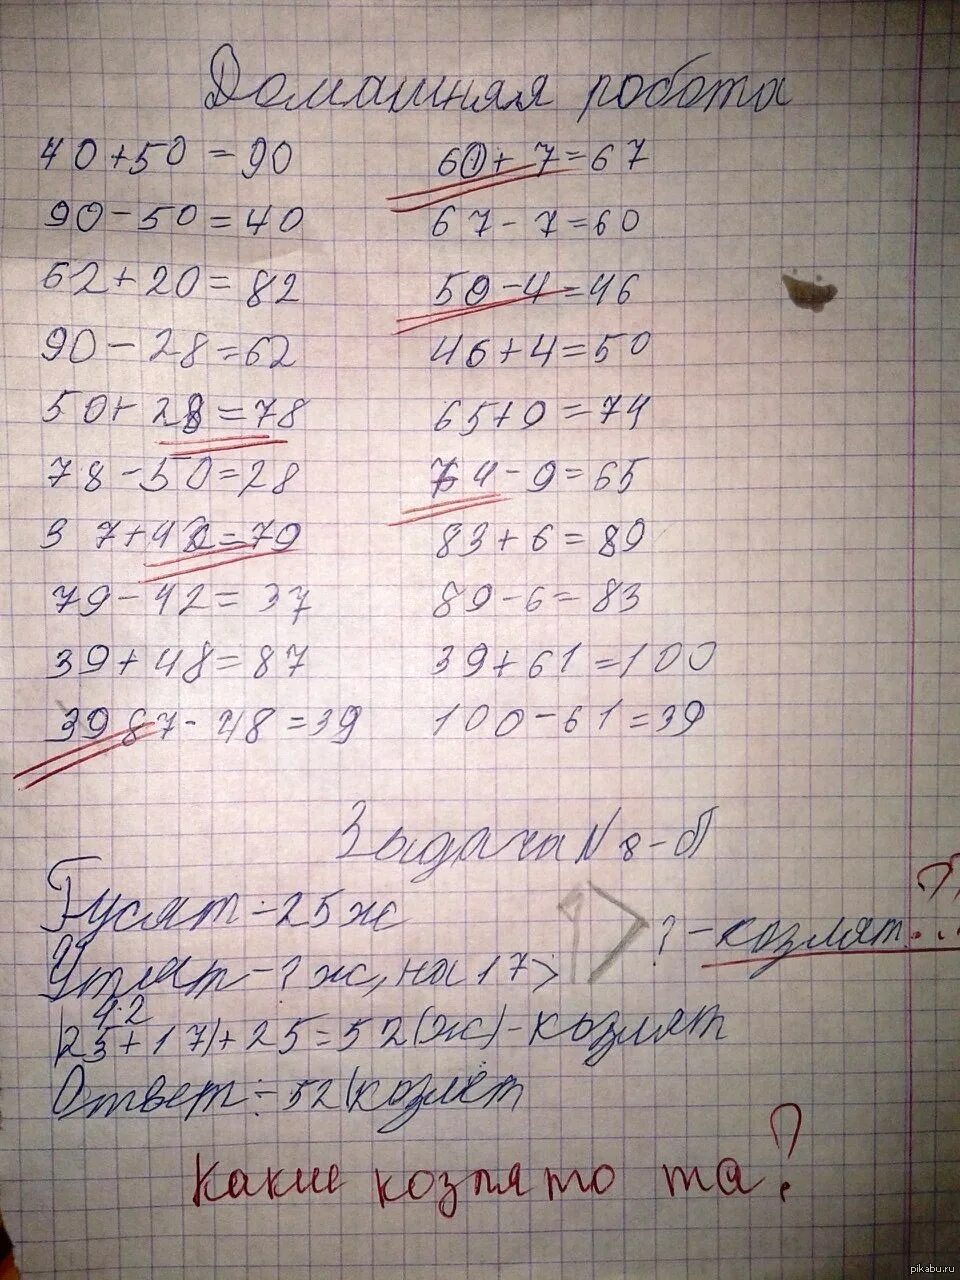 Домашняя робота
40+50=90
90-50=40
62+20=82
90-28=62
50+28=78
78-50=28
37+42=79
79-42=37
39+48=87
39 87-48=39
60+7=67
67-7=60
50-4=46
46+4=50
65+9=74
74-9=65
83+6=89
89-6=83
39+61=100
100-61=39
Задача N 8-б
Гусят - 25ж
? - козлят...
Утлят - ? ж, на 17 >
42
(25+17)+25=52(ж) - козлят
Ответ: 52 козлёт
Какие козлято та?
pikabu.ru